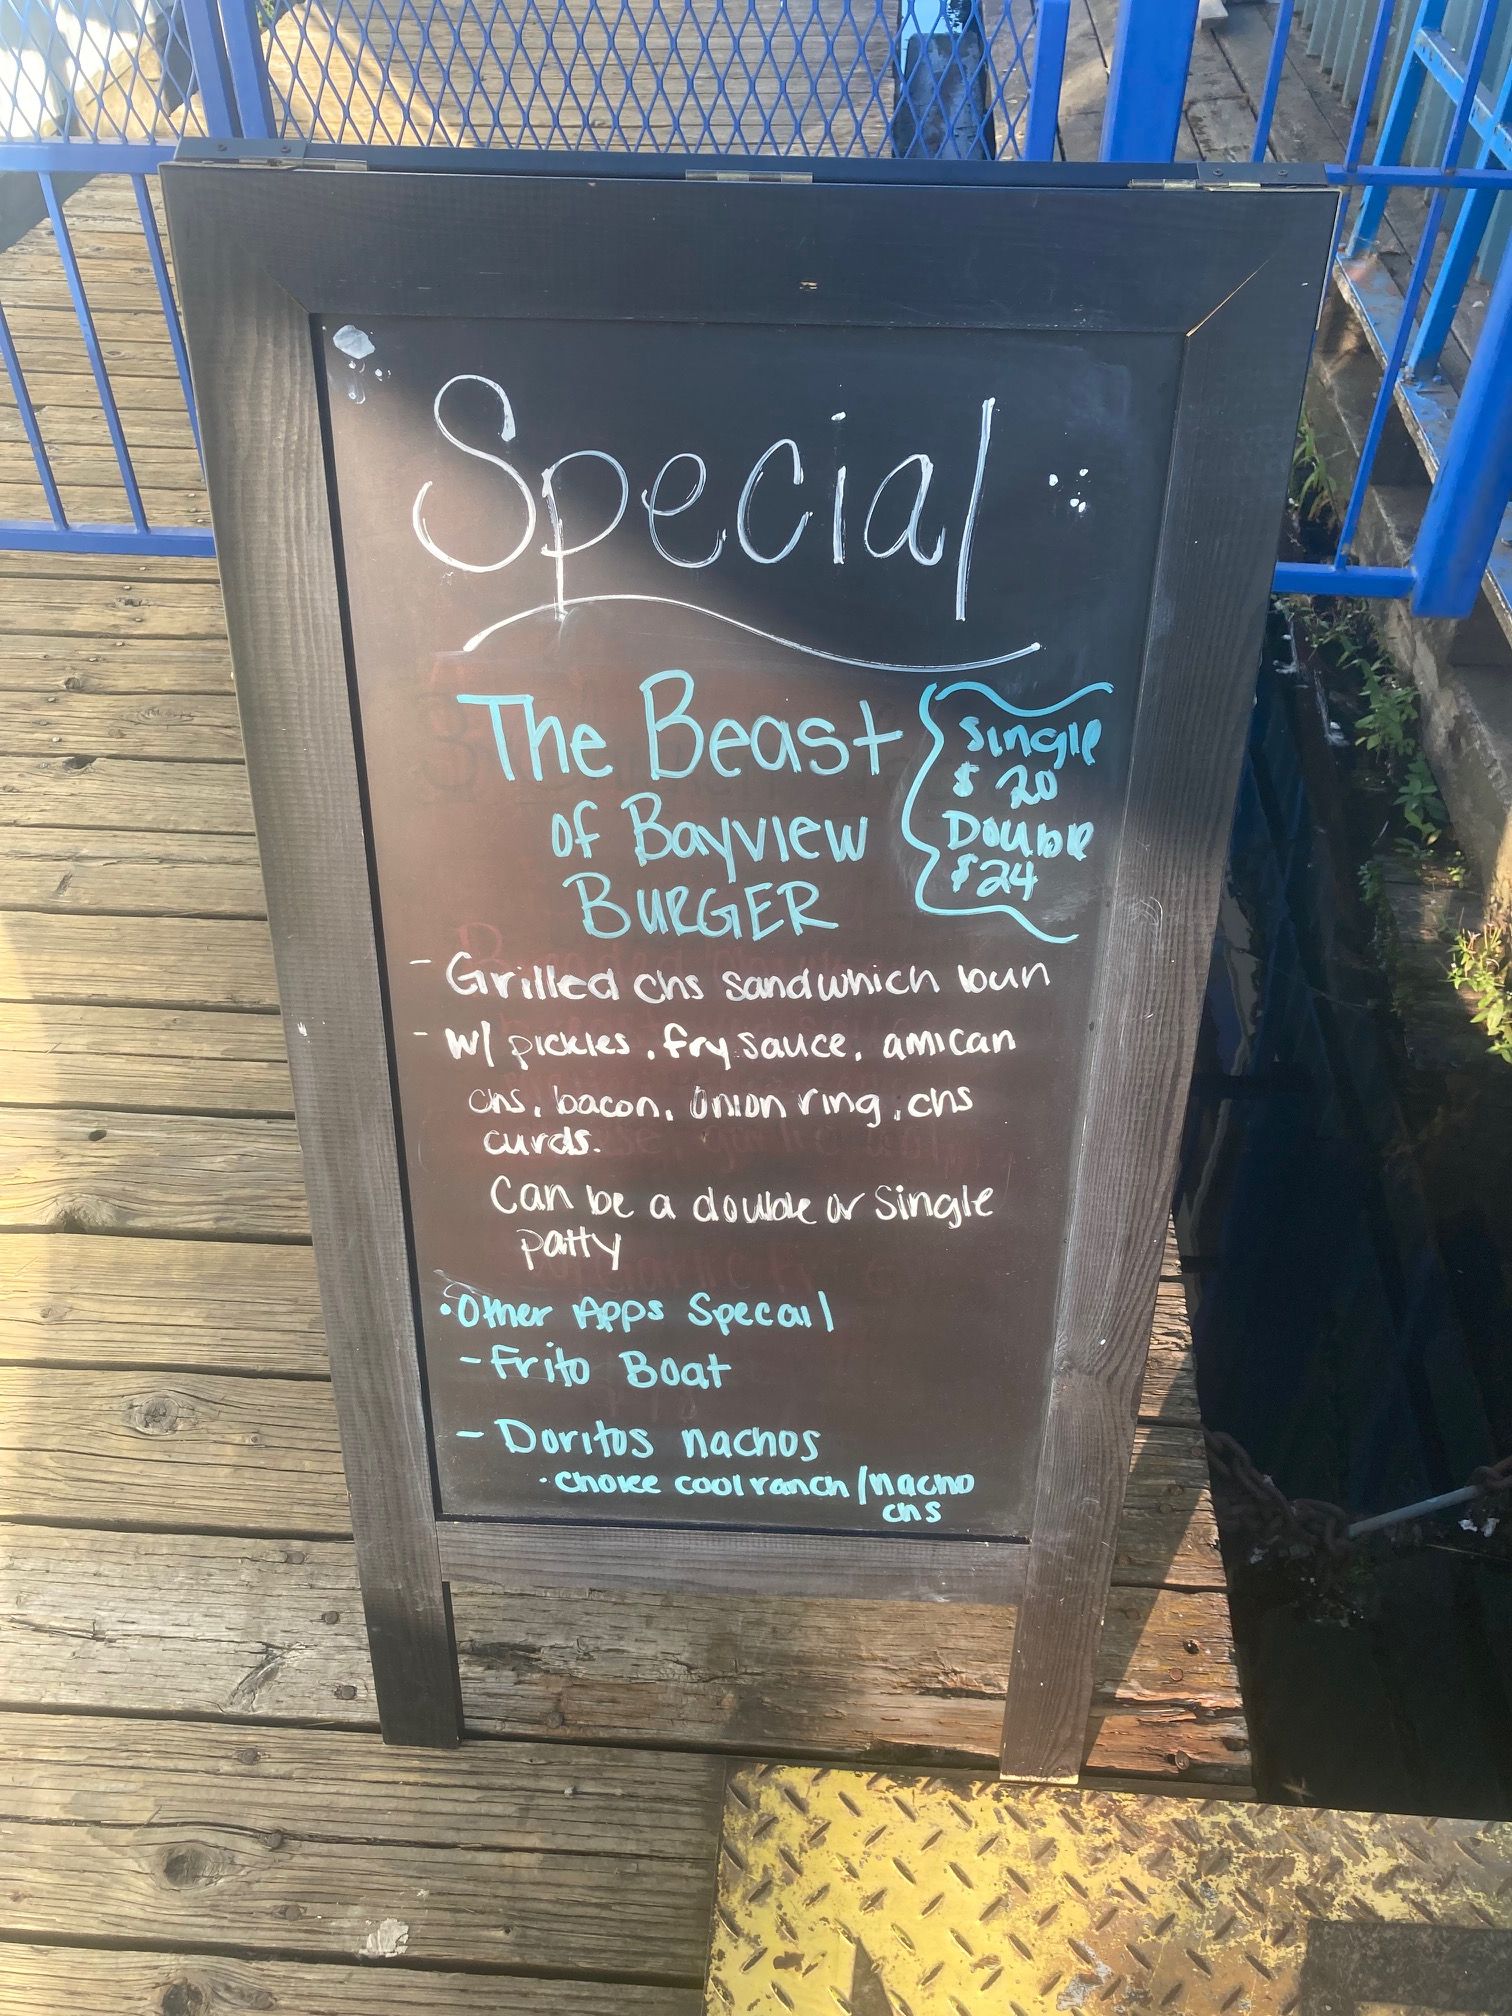 Special
The Beast
of Bayview
BURGER
Single
$ 20
Double
$24
- Grilled chs sandwhich bun
- W/ pickles, fry sauce, amican
chs, bacon, onion ring, chs
curds.
Can be a double or single
patty
• Other Apps Specail
- Frito Boat
- Doritos nachos
• Choice cool ranch/nacho
chs